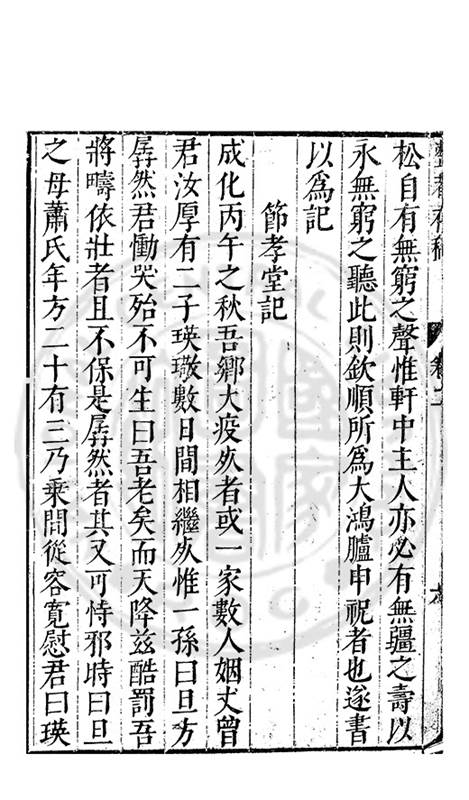 整菴存稿 卷二
松自有無窮之聲惟軒中主人亦必有無疆之壽以
永無窮之聽此則欽順所為大鴻臚申祝者也遂書
以為記
節孝堂記
成化丙午之秋吾鄉大疫死者或一家數人姻丈曾
君汝厚有二子瑛璥數日間相繼死惟一孫曰旦方
孱然君慟哭殆不可生曰吾老矣而天降茲酷罰吾
將疇依壯者且不保是孱然者其又可恃邪時曰旦
之母蕭氏年方二十有三乃乘間從容寬慰君曰瑛